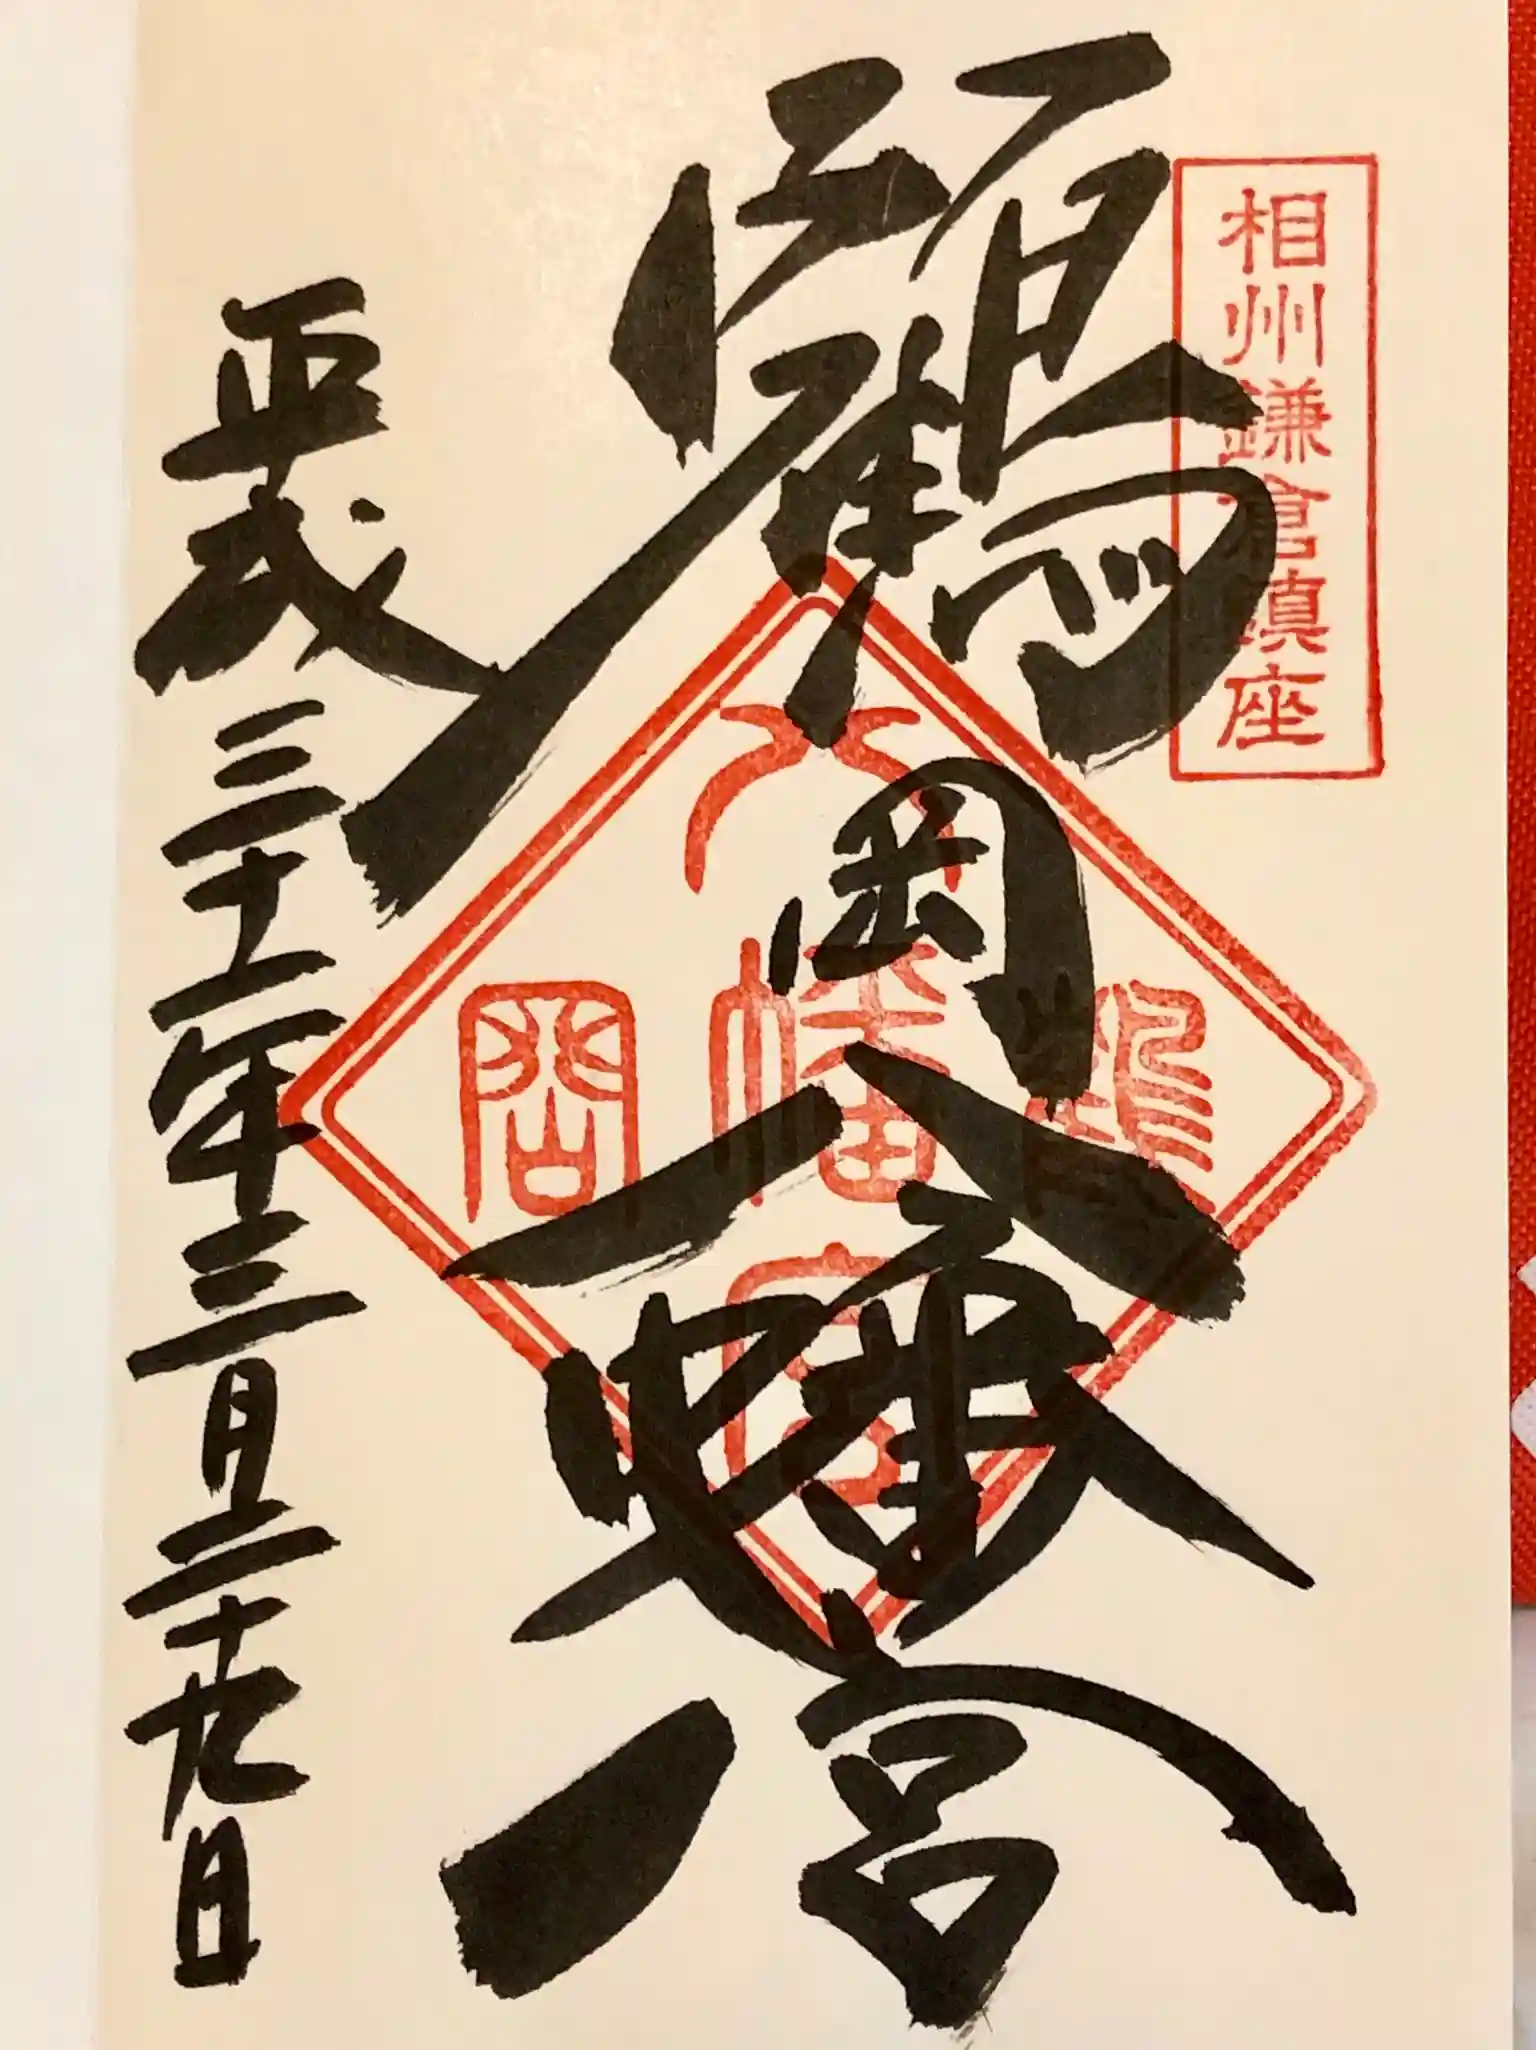 相州鎌倉鎮座
鶴岡八幡宮
鶴
八幡宮
岡
平成三十一年三月二十九日